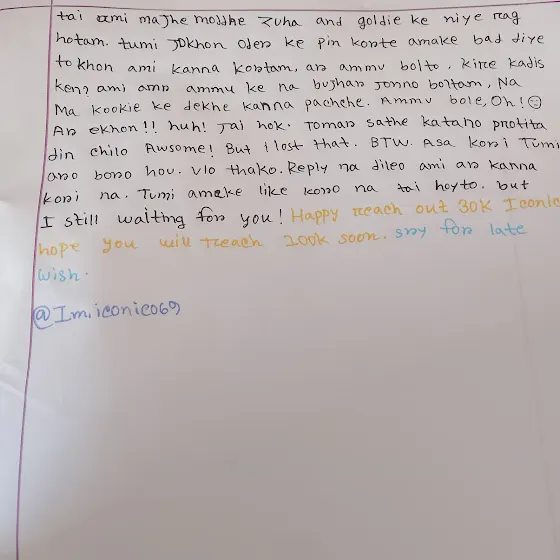 tai ami majhe moddhe Zuha and goldie ke niye rag
hotam. tumi jokhon oder ke pin korte amake bad diye
tokhon ami kanna kortam, ar ammu bolto, kire kadis
keno ami amr ammu ke na bujhar jonno boltam, Na
Ma kookie ke dekhe kanna pachche. Ammu bole, Oh! ☹
Ar ekhon!! huh! Jai hok. Tomar sathe katano protita
din chilo Awsome! But I lost that. BTW. Asa kori Tumi
aro boro hou. Vlo thako. Reply na dileo ami ar kanna
kori na. Tumi amake like koro na tai hoyto. but
I still waiting for you! Happy reach out 30K Iconic
hope you will reach 100k soon. sry for late
wish.
@Im.iconic069